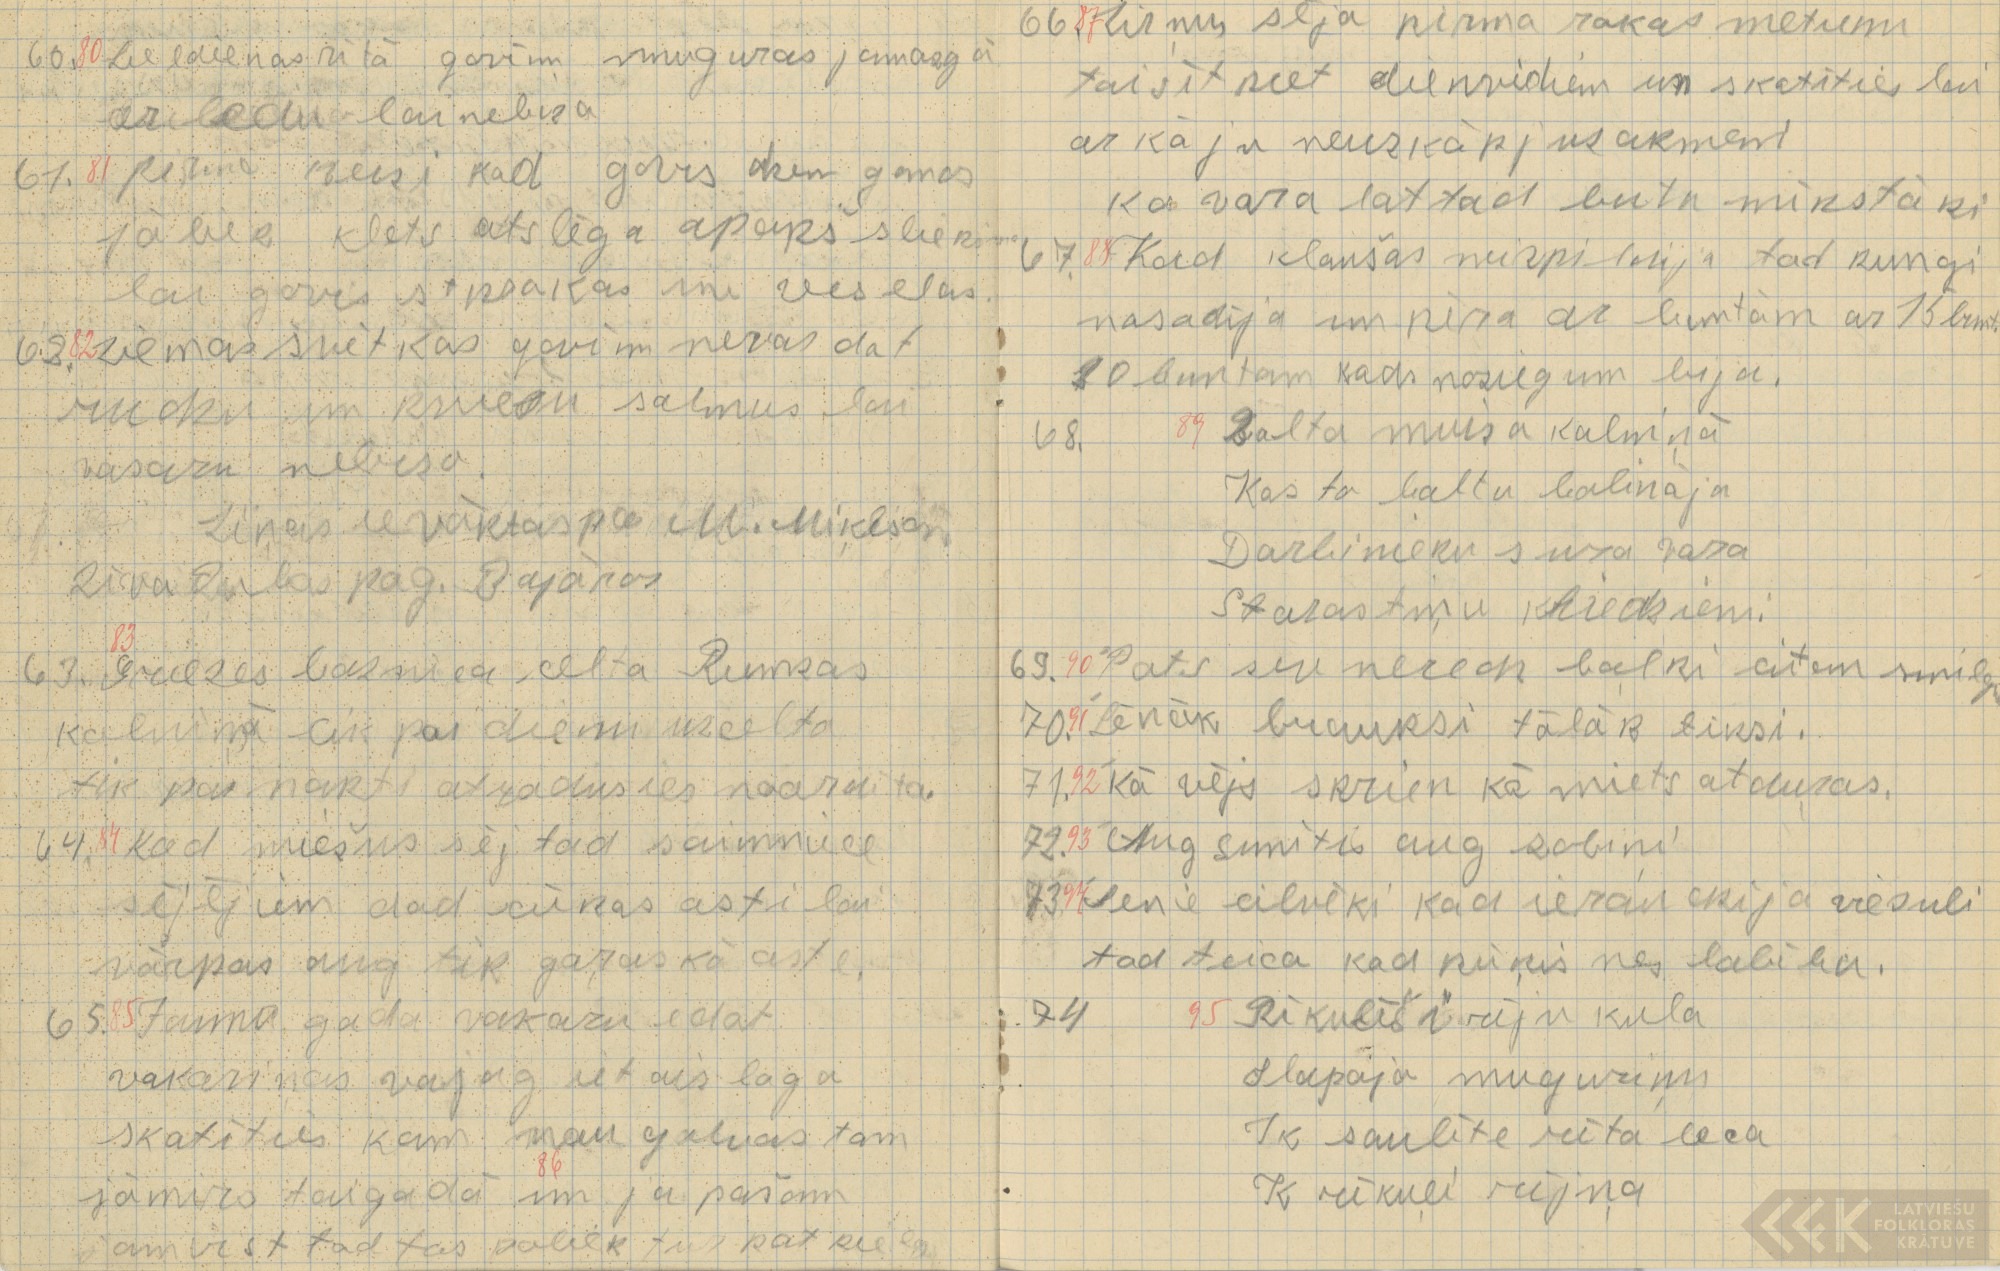 60. 80 Lieldienas ritā govim muguras jamazgā
ar ledu lai nebiza
61. 81 pirmo reizi kad govis dzen ganos
jāliek klēts atslēga apakš sliekšņa
lai govis staigkas un veselas.
62. 82 Ziemas svētkos govim nevar dot
rudzu un kviešu salmus lai
vasaru nebiza.
Ziņas ievāktas pie M. Miķelson
Zivar Rubas pag. Bajāros
63. 83 Griezes baznica celta Rumzas
kalniņā cik pa dienu uzcelta
tik pa nakti atradusies noardita.
64. 84 Kad miežus sēj tad saimniece
sējējiem dod cūkas asti lai
vārpas aug tik garas kā aste.
65. 85 Jauna gada vakaru ēdot
vakariņas vajag iet ais loga
skatities kam nau galvas tam
jāmirs taigadā 86 un ja pašam
jamirst tad tas paliek tur pat
66 87 Zirņus sēja pirmā rokas metienu
taisīt pret dienvidiem un skatities lai
ar kāju neuzkāpj uz akmeni
ka vara lat tad butu mikstāki
67. 88 Kad klaušas neizpildija tad kungi
nosadija un pēra ar buntām ar 15 bunt.
20 buntam kads noziegum bija.
68. 89 Balta muiža kalniņā
Kas to baltu balināja
Darbinieku sura vara
Starastiņu kliedzieni.
69. 90 Pats sev neredz baļķi citam smilgu
70. 91 Lēnāk brauksi tālāk tiksi.
71. 92 Kā vējs skrien kā miets atduras.
72. 93 Aug sunitis aug zobiņi
73. 94 Senie cilvēki kad ieraudzija viesuli
tad teica kad pūķis nes labibu.
74 95 Rikulīši rūju kula
Slapajā muguriņu
Ik saulite rita leca
Ik rikuļi rijņa
LATVIEŠU
FOLKLORAS
KRĀTUVE